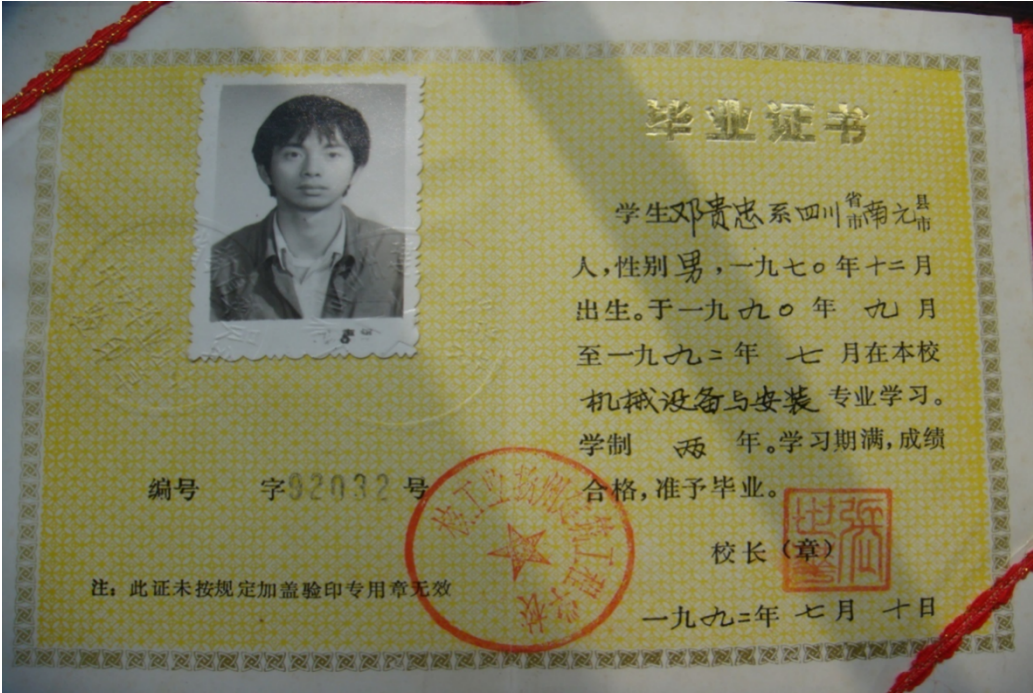 毕业证书
学生邓贵忠系四川省市南充县市
人,性别男,一九七〇年十二月
出生。于一九九〇年九月
至一九九二年七月在本校
机械设备与安装专业学习。
学制两年。学习期满,成绩
合格,准予毕业。
校长(章)
一九九二年七月十日
编号 字92032号
注:此证未按规定加盖验印专用章无效